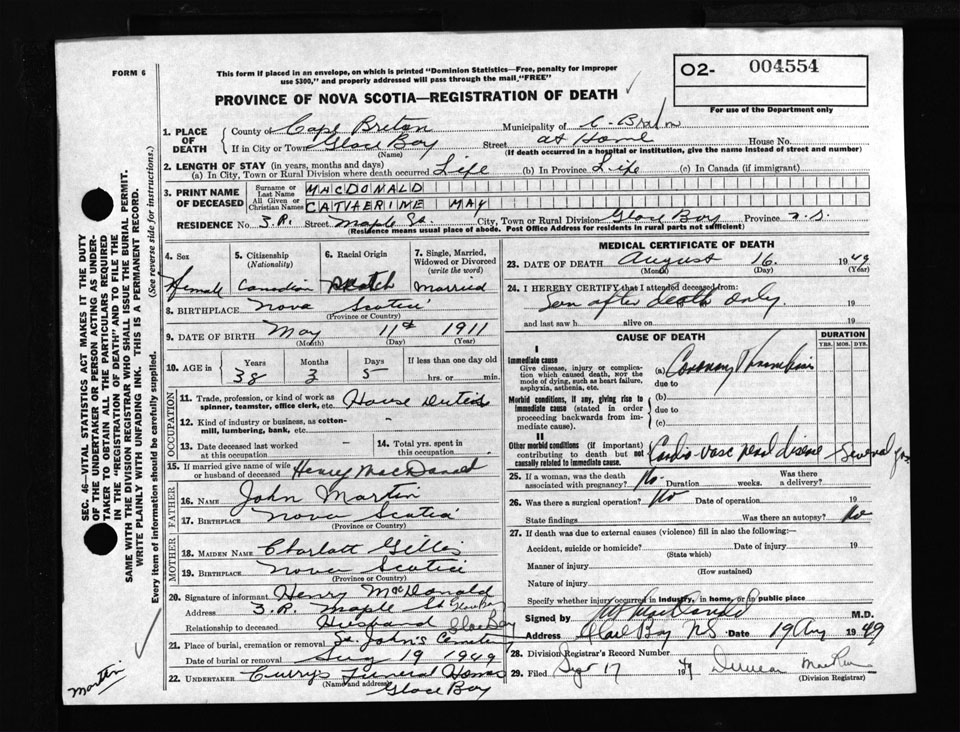 FORM 6
This form if placed in an envelope, on which is printed "Dominion Statistics—Free, penalty for improper use $300," and properly addressed will pass through the mail "FREE"
O2- 004554
For use of the Department only
PROVINCE OF NOVA SCOTIA—REGISTRATION OF DEATH
1. PLACE OF DEATH
County of Cape Breton Municipality of C. Breton
If in City or Town Glace Bay (Name) Street at Home House No.
(If death occurred in a hospital or institution, give the name instead of street and number)
2. LENGTH OF STAY (in years, months and days)
(a) In City, Town or Rural Division where death occurred Life (b) In Province Life (c) In Canada (if immigrant)
3. PRINT NAME OF DECEASED
Surname or Last Name MACDONALD
All Given or Christian Names CATHERINE MAY
RESIDENCE No. 3.R. Street Maple St. City, Town or Rural Division Glace Bay Province N.S.
(Residence means usual place of abode. Post Office Address for residents in rural parts not sufficient)
4. Sex Female
5. Citizenship (Nationality) Canadian
6. Racial Origin Scotch
7. Single, Married, Widowed or Divorced (write the word) Married
8. BIRTHPLACE Nova Scotia (Province or Country)
9. DATE OF BIRTH May 11th 1911
(Month) (Day) (Year)
10. AGE in Years 38 Months 3 Days 5 If less than one day old hrs. or min.
OCCUPATION
11. Trade, profession, or kind of work as spinner, teamster, office clerk, etc. House Duties
12. Kind of industry or business, as cotton-mill, lumbering, bank, etc.
13. Date deceased last worked at this occupation
14. Total yrs. spent in this occupation
15. If married give name of wife or husband of deceased Henry MacDonald
FATHER
16. NAME John Martin
17. BIRTHPLACE Nova Scotia (Province or Country)
MOTHER
18. MAIDEN NAME Charlott Gillis
19. BIRTHPLACE Nova Scotia (Province or Country)
20. Signature of informant Henry MacDonald
Address 3.R. Maple St Glace Bay
Relationship to deceased Husband Glace Bay
21. Place of burial, cremation or removal St. John's Cemetery
Date of burial or removal Aug 19 1949
22. UNDERTAKER Curry's Funeral Home
(Name and address) Glace Bay
MEDICAL CERTIFICATE OF DEATH
23. DATE OF DEATH August 16. 1949
(Month) (Day) (Year)
24. I HEREBY CERTIFY that I attended deceased from:
Seen after death only. 19
and last saw h alive on 19
CAUSE OF DEATH DURATION
YRS. MOS. DYS.
I
Immediate cause
Give disease, injury or complication which caused death, not the mode of dying, such as heart failure, asphyxia, asthenia, etc.
(a) Coronary Thrombosis
due to
Morbid conditions, if any, giving rise to immediate cause (stated in order proceeding backwards from immediate cause).
(b)
due to
(c)
II
Other morbid conditions (if important) contributing to death but not causally related to immediate cause.
Cardio-vasc renal disease Several yrs
25. If a woman, was the death associated with pregnancy? No. Duration weeks. Was there a delivery?
26. Was there a surgical operation? No Date of operation 19
State findings Was there an autopsy? No
27. If death was due to external causes (violence) fill in also the following:
Accident, suicide or homicide? Date of injury 19
(State which)
Manner of injury
(How sustained)
Nature of injury
Specify whether injury occurred in industry, in home, or in public place
Signed by MacDonald M.D.
Address Glace Bay NS Date 19 Aug 1949
28. Division Registrar's Record Number
29. Filed Sept 17 1949 Duncan
(Division Registrar)
SEC. 46—VITAL STATISTICS ACT MAKES IT THE DUTY OF THE UNDERTAKER OR PERSON ACTING AS UNDERTAKER TO OBTAIN ALL THE PARTICULARS REQUIRED IN THE "REGISTRATION OF DEATH" AND TO FILE THE SAME WITH THE DIVISION REGISTRAR WHO SHALL ISSUE THE BURIAL PERMIT.
WRITE PLAINLY WITH UNFADING INK. THIS IS A PERMANENT RECORD.
Every item of information should be carefully supplied. (See reverse side for instructions.)
Martin